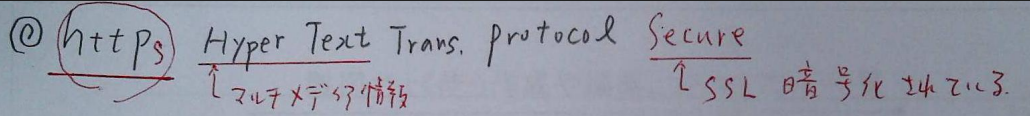 @ https Hyper Text Trans. protocol Secure
↑マルチメディア情報 ↑SSL 暗号化されている.